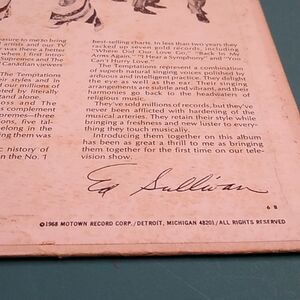 easure to me to bring
artists and our TV
was there a finer
when I first intro-
Supremes and The
Candlelivers
The Temptations
aries and in
d our millions of
ted by literally
ond alone.
and The
complement
upremes—three
ions, five tal-
elong in the
ing them was
c history of
n the No. 1
best-selling charts. In less than two years they
racked up seven gold records, including
"Where Did Our Love Go," "Back In My
Arms Again," "I Hear a Symphony" and "You
Can't Hurry Love."
The Temptations represent a combination
of superb natural singing voices polished by
arduous and intelligent practice. They delight
the eye as well as the ear. Their musical
arrangements are subtle and vibrant, and their
harmonies go back to the headwaters of
religious music.
They've sold millions of records, but they've
never been afflicted with hardening of the
musical arteries. They retain their style while
bringing a freshness and new luster to every-
thing they touch with their voices.
Introducing them together on this album
has been as great a thrill to me as bringing
them together for the first time on our tele-
vision show.
Ed Sullivan
6 B
©1968 MOTOWN RECORD CORP./DETROIT, MICHIGAN 48201/ALL RIGHTS RESERVED